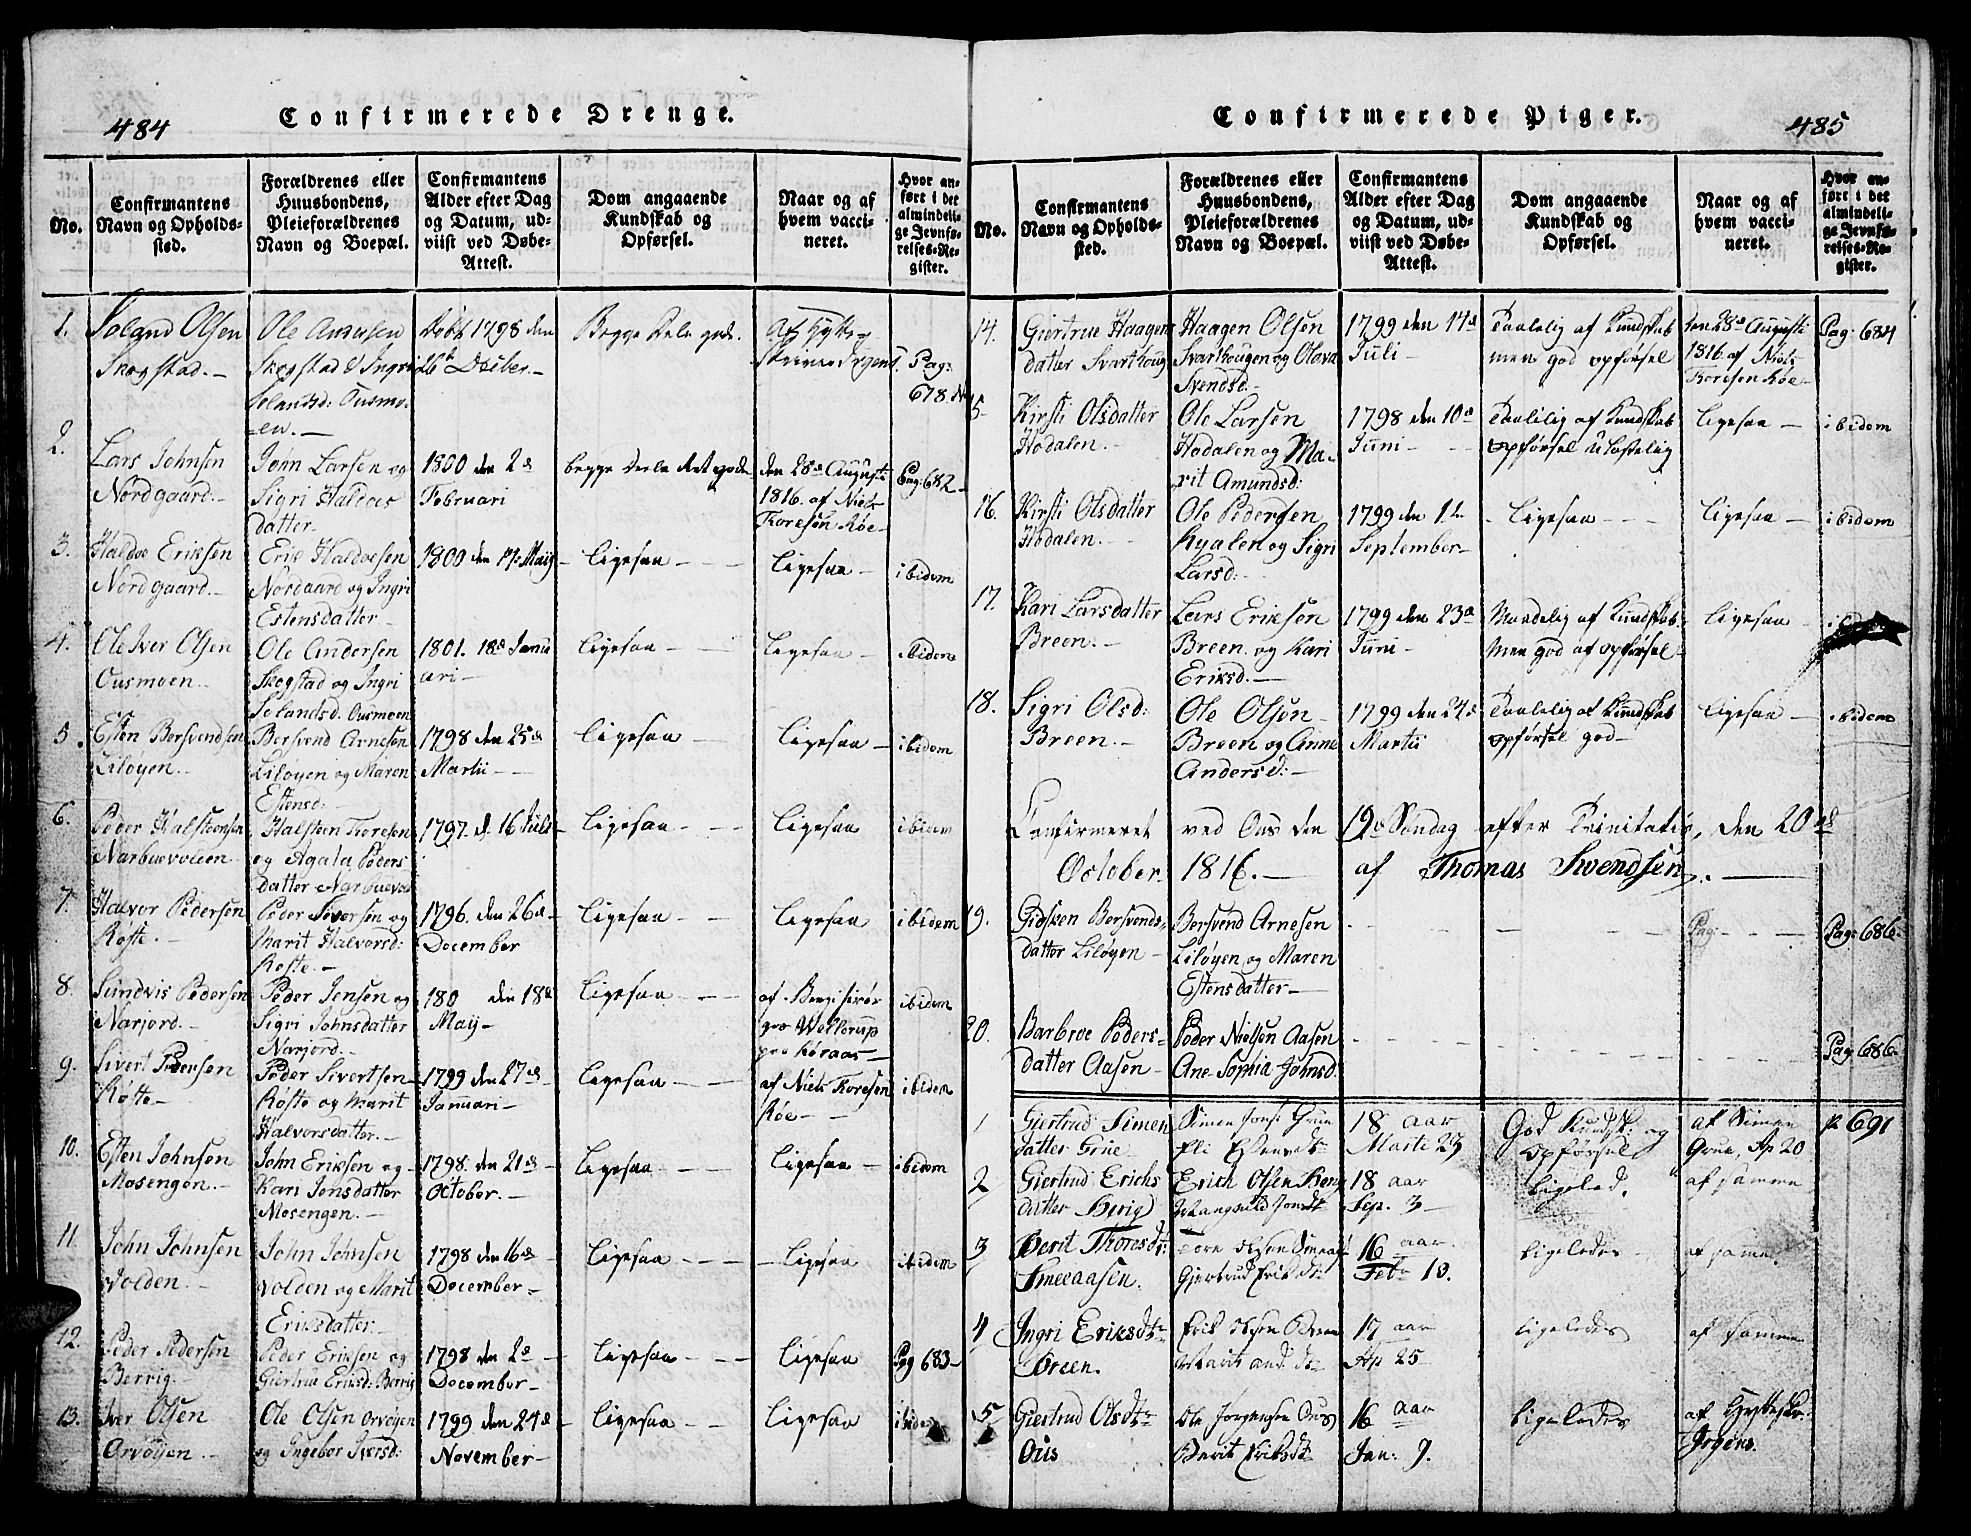 484
Confirmerede Drenge.
No.
Confirmantens
Navn og Opholds-
sted.
Forældrenes eller
Huusbondens,
Pleieforældrenes
Navn og Boepæl.
Confirmantens
Alder efter Dag
og Datum, ud-
viist ved Døbe-
Attest.
Dom angaaende
Kundskab og
Opførsel.
Naar og af
hvem vacci-
neret.
Hvor an-
ført i det
almindeli-
ge Jevnfø-
relses-Re-
gister.
1. Soland Olsen
Skogstad.
Ole Andersen
Skogstad & Ingri
Solandsd: Ousmo-
en.
Født 1798 den
26 Decber.
Begge Dele gode.
Af Hytte-
skriver Irgens.
Pag:
678.
2. Lars Johnsen
Nordgaard.
John Larsen og
Sigri Haldoes
datter
1800 den 2d
Februari
begge Deele det gode
den 28d Augusti
1816 af Niels
Toresen Røe
Pag: 682
3. Haldoe Eriksen
Nordgaard.
Erik Haldoesen
Nordgaard og Ingri
Estensdatter
1800 den 17 Maij
Ligesaa
Ligesaa
ibidem
4. Ole Iver Olsen
Ousmoen
Ole Andersen
Skogstad og Ingri
Solandsd. Ousmoen
1801. 18d Janu
ari
Ligesaa
Ligesaa
ibidem
5. Esten Borsvendsen
Liløyen
Borsvend Arnesen
Liløyen og Maren
Estensd:
1798 den 25d
Martii
Ligesaa
Ligesaa
ibidem
6. Peder Halsteensen
Narbuevolden
Halsteen Toresen
og Agata Peders
datter Narbuevol
1797. d. 16 Juli
Ligesaa
Ligesaa
ibidem
7. Halvor Pedersen
Røste.
Peder Siversen og
Marit Halvorsd:
Røste.
1796. den 26d
December
Ligesaa
Ligesaa
ibidem
8. Sundvis Pedersen
Narjord.
Peder Jensen og
Sigri Johnsdatter
Narjord.
180 den 18d
Maij
Ligesaa
af
ibidem
9. Sivert Pedersen
Røste
Peder Sivertsen
Røste og Marit
Halvorsdatter.
1799 den 27d
Januari
Ligesaa
af Niels Toresen
Røe
ibidem
10. Esten Johnsen
Mosengen.
John Eriksen og
Kari Jonsdatter
Mosengen.
1798. den 21d
October.
Ligesaa
Ligesaa
ibidem
11. John Johnsen
Volden.
John Johnsen
Volden og Marit
Eriksdatter
1798 den 16d
December
Ligesaa
Ligesaa
ibidem
12. Peder Pedersen
Berrig.
Peder Eriksen og
Giertrue Eriksd: Berrig
1798 den 2d
December
Ligesaa
Ligesaa
Pag 683
13. Iver Olsen
Orvøyen.
Ole Olsen Orvøyen
og Ingebor Iversd:
1799 den 24d
November
Ligesaa
Ligesaa
ibidem
Confirmerede Piger.
485
No.
Confirmantens
Navn og Opholds-
sted.
Forældrenes eller
Huusbondens,
Pleieforældrenes
Navn og Boepæl.
Confirmantens
Alder efter Dag
og Datum, ud-
viist ved Døbe-
Attest.
Dom angaaende
Kundskab og
Opførsel.
Naar og af
hvem vacci-
neret.
Hvor an-
ført i det
almindeli-
ge Jevnfø-
relses-Re-
gister.
14. Giertrue Haagens
datter Svarthoug
Haagen Olsen
Svarthougen og Olava
Svendsd.
1799 den 14d
Juli
Taalelig af Kundskab
men god opførsel
den 28d Augusti
1816 af Niels
Toresen Røe
Pag: 684
15. Kirsti Olsdatter
Hodalen.
Ole Larsen
Hodalen og Ma-
rit Amundsd:
1798 den 10d
Juni
Taalelig af Kundskab
opførsel ulastelig
Ligesaa
ibidem
16. Kirsti Olsdatter
Hodalen.
Ole Pedersen
og Sigri
Larsd:
1799 den 1d
September
Ligesaa
Ligesaa
ibidem
17. Kari Larsdatter
Breen.
Lars Eriksen
Breen og Kari
Eriksd.
1799 den 23d
Juni
Maadelig af Kundskab
men god af opførsel
Ligesaa
ibidem
18. Sigri Olsd:
Breen.
Ole Olsen
Breen og Anne
Andersd:
1799 den 24d
Martii
Taalelig af Kundskab
opførsel god
Ligesaa
ibidem
Confirmeret ved Ous den 19d Søndag efter Trinitatis, den 20d
October 1816. af Thomas Svendsen.
19. Gidsken Borsvends-
datter Liløyen
Borsvend Arnesen
Liløyen og Maren
Estensdatter
Pag:
Pag: 686
20. Barbroe Peders-
datter Aasen
Peder Nielsen Aasen
Ane Sophia Johnsd.
Pag 686
1 Giertrud Simen
datter Grue
Simen Jons. Grue
Eli
18 aar
Marti 23
God Kundsk: og
opførsel
af Simen
Grue, Ap 20
p 691
2 Giertrud Erichs
datter Berig
Erich Olsen Berig
Jonsdt
18 aar
Sep. 3
Ligeled.
af samme
3 Berit Thorsdt:
Sneeaasen.
Tore Olsen
Gjertrud Eriksdt
16 aar
Feb. 10.
Ligeledes
af samme
4 Ingri Eriksdtr
Breen.
Erik Olsen Breen
Marit And. dt
17 aar
Ap 25
Ligeledes
af samme
5 Giertrud Olsdtr
Ous
Ole Jørgensen Ous
Berit Eriksdt
16 aar
Jan: 9.
Ligeledes
af Hytteskr:
Irgens.